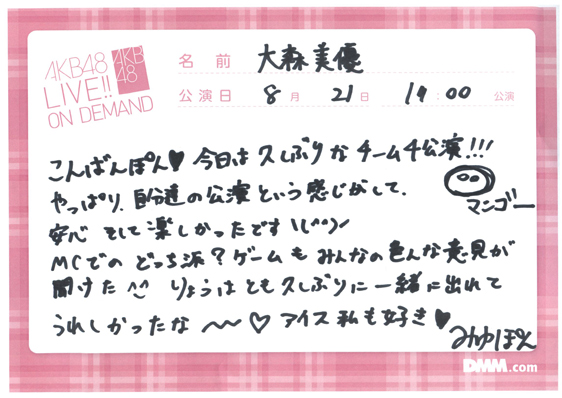 AKB48
LIVE!!
ON DEMAND
AKB
48
名前 大森美優
公演日 8月 21日 19:00 公演
こんばんぽん♥ 今日は久しぶりなチーム4公演!!!
やっぱり、自分達の公演という感じがして、
マンゴー
安心 そして楽しかったです\(^^)/
MCでの どっち派?ゲームも みんなの色んな意見が
聞けた^^ りょうはとも久しぶりに一緒に出れて
うれしかったな〜〜♡ アイス私も好き♥
みゆぽん
DMM.com